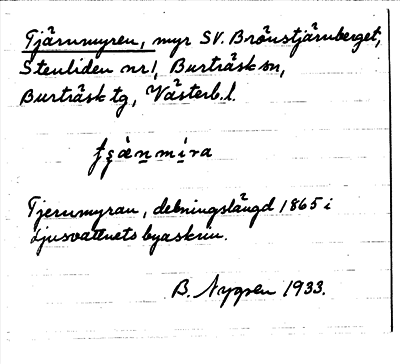 Tjärnmyren, myr SV. Brönstjärnberget,
Stenliden nr 1, Burträsk sn,
Burträsk tg, Västerb. l.
Tjernmyran, delningslängd 1865 i
Ljusvattnets byaskrin.
B. Nygren 1933.